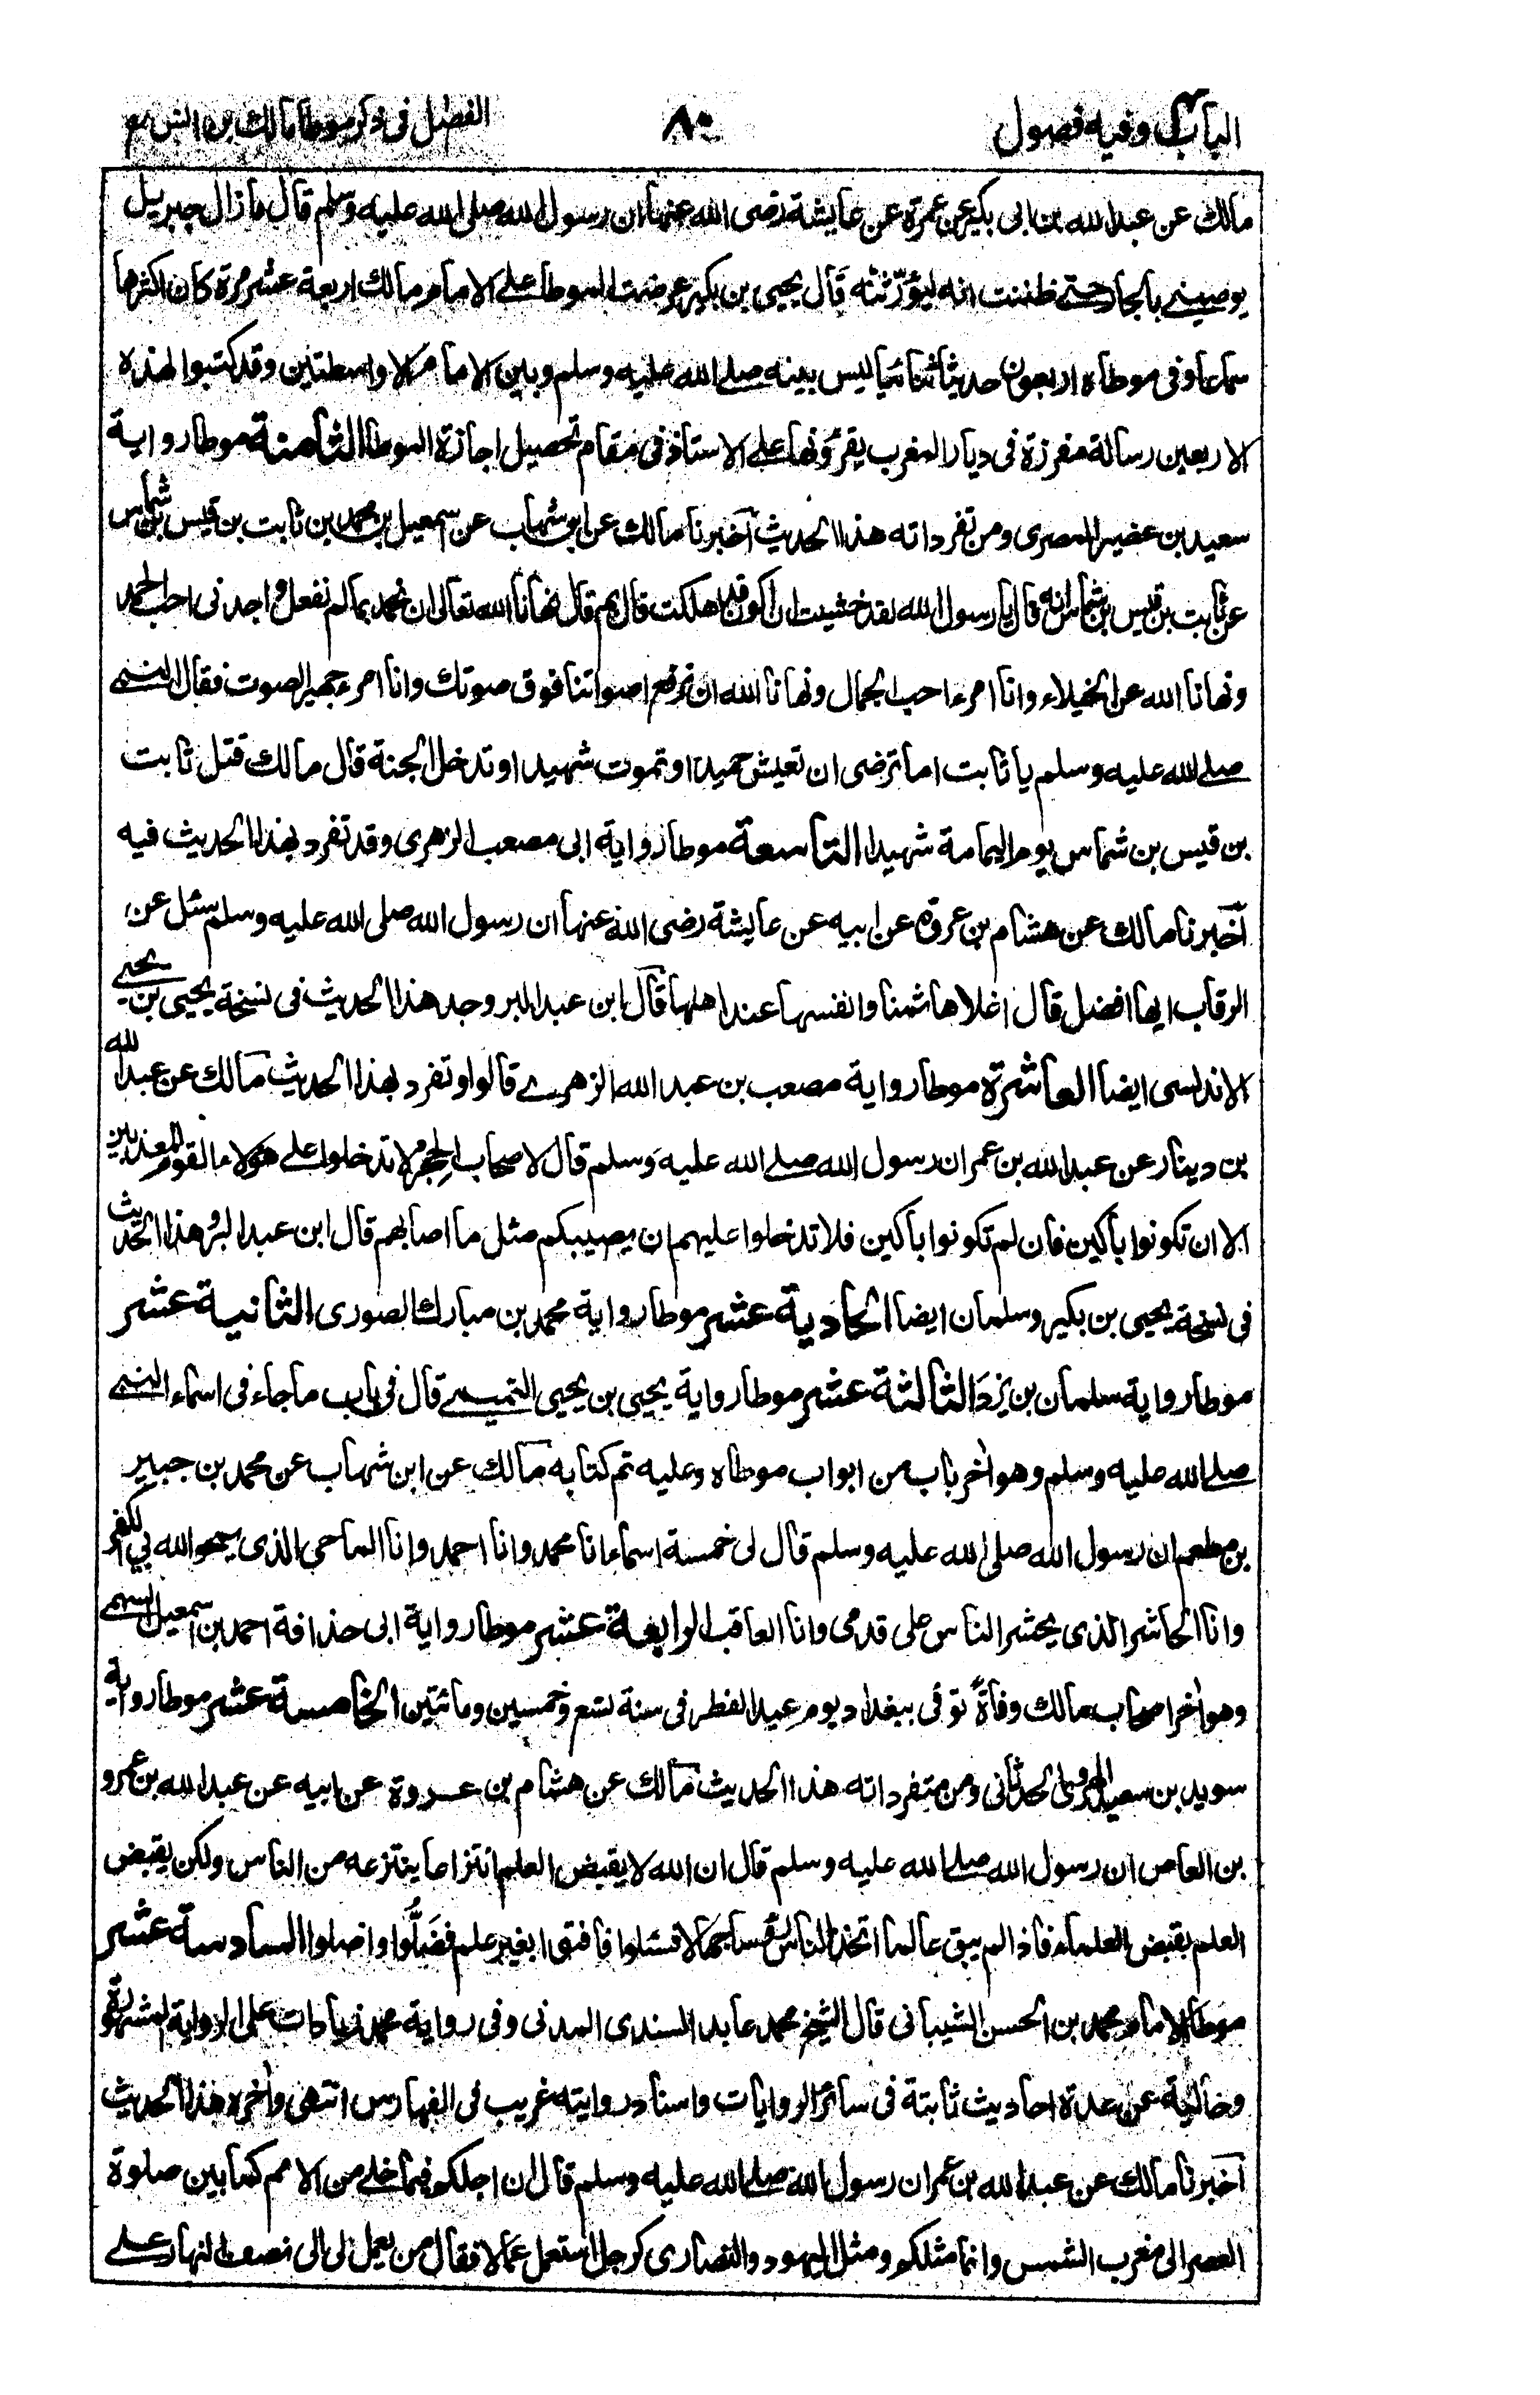 الباب وفيه فصول
٨٠
الفصل فى ذكر موطأ مالك بن انس
مالك عن عبد الله بن ابى بكير عن عمرة عن عايشة رضى الله عنها ان رسول الله صلى الله عليه وسلم قال ما زال جبريل
يوصينى بالجار حتى ظننت انه ليؤرّثنّه قال يحيى بن بكير عرضت الموطا على الامام مالك اربعة عشر مرة كان اكثرها
سماعا وفى موطاه اربعون حديثا ثنائيا ليس بينه صلى الله عليه وسلم وبين الامام الا واسطتين وقد كتبوا لهذه
الاربعين رسالة مفرزة فى ديار المغرب يقرؤنها على الاستاذ فى مقام تحصيل اجازة الموطا الثامنة موطا رواية
سعيد بن عفير المصرى ومن تفرداته هذا الحديث اخبرنا مالك عن ابن شهاب عن اسمعيل بن محمد بن ثابت بن قيس بن شماس
عن ثابت بن قيس بن شماس انه قال يا رسول الله لقد خشيت ان اكون قد هلكت قال بم قال نهانا الله تعالى ان نحمد بما لم نفعل و اجدنى احب الحمد
ونهانا الله عن الخيلاء وانا امرء احب الجمال ونهانا الله ان نرفع اصواتنا فوق صوتك وانا امرء جهير الصوت فقال النبى
صلى الله عليه وسلم يا ثابت اما ترضى ان تعيش حميدا وتموت شهيدا وتدخل الجنة قال مالك قتل ثابت
بن قيس بن شماس يوم اليمامة شهيدا التاسعة موطا رواية ابى مصعب الزهرى وقد تفرد بهذا الحديث فيه
اخبرنا مالك عن هشام بن عروة عن ابيه عن عايشة رضى الله عنها ان رسول الله صلى الله عليه وسلم سئل عن
الرقاب ايها افضل قال اغلاها ثمنا وانفسها عند اهلها قال ابن عبد البر وجد هذا الحديث فى نسخة يحيى بن يحيى
الاندلسى ايضا العاشرة موطا رواية مصعب بن عبد الله الزهرى قالوا وتفرد بهذا الحديث مالك عن عبد الله
بن دينار عن عبد الله بن عمر ان رسول الله صلى الله عليه وسلم قال لاصحاب الحجر لا تدخلوا على هؤلاء القوم المعذبين
الا ان تكونوا باكين فان لم تكونوا باكين فلا تدخلوا عليهم ان يصيبكم مثل ما اصابهم قال ابن عبد البر وهذا الحديث
فى نسخة يحيى بن بكير وسلمان ايضا الحادية عشر موطا رواية محمد بن مبارك الصورى الثانية عشر
موطا رواية سلمان بن يزد الثالثة عشر موطا رواية يحيى بن يحيى التميمى قال فى باب ما جاء فى اسماء النبى
صلى الله عليه وسلم وهو اٰخر باب من ابواب موطاه وعليه تم كتابه مالك عن ابن شهاب عن محمد بن جبير
بن مطعم ان رسول الله صلى الله عليه وسلم قال لى خمسة اسماء انا محمد وانا احمد وانا الماحى الذى يمحو الله بي الكفر
وانا الحاشر الذى يحشر الناس على قدمى وانا العاقب الرابعة عشر موطا رواية ابى حذافة احمد بن اسمعيل السهمى
وهو اٰخر اصحاب مالك وفاةً توفى ببغداد يوم عيد الفطر فى سنة تسع وخمسين ومائتين الخامسة عشر موطا رواية
سويد بن سعيد الهروى الحدثانى ومن متفرداته هذا الحديث مالك عن هشام بن عروة عن ابيه عن عبد الله بن عمرو
بن العاص ان رسول الله صلى الله عليه وسلم قال ان الله لا يقبض العلم انتزاعا ينتزعه من الناس ولكن يقبض
العلم بقبض العلماء فاذا لم يبق عالما اتخذ الناس رؤسا جهالا فسئلوا فافتوا بغير علم فضَلُّوا واضلوا السادسة عشر
موطا الامام محمد بن الحسن الشيبانى قال الشيخ محمد عابد السندى المدنى وفى رواية محمد زيادات على الرواية المشهورة
وخالية عن عدة احاديث ثابتة فى سائر الروايات واسناد روايته غريب فى الفهارس انتهى واٰخره هذا الحديث
اخبرنا مالك عن عبد الله بن عمر ان رسول الله صلى الله عليه وسلم قال ان اجلكم فيما خلى من الامم كما بين صلوة
العصر الى مغرب الشمس وانما مثلكم ومثل اليهود والنصارى كرجل استعمل عمالا فقال من يعمل لى الى نصف النهار على